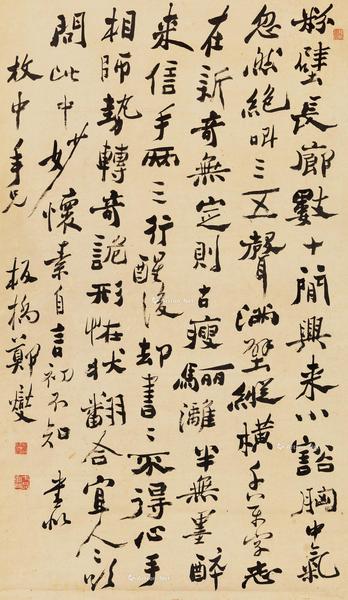 粉壁长廊數十間興来小豁胸中氣
忽然絕叫三五聲滿壁縱橫千萬字志
在新奇無定則古瘦驪灕半無墨醉
来信手兩三行醒後却書書不得心手
相師勢轉奇詭形怪狀翻合宜人人欲
問此中妙懷素自言初不知 書似
枚中年兄
板橋鄭燮